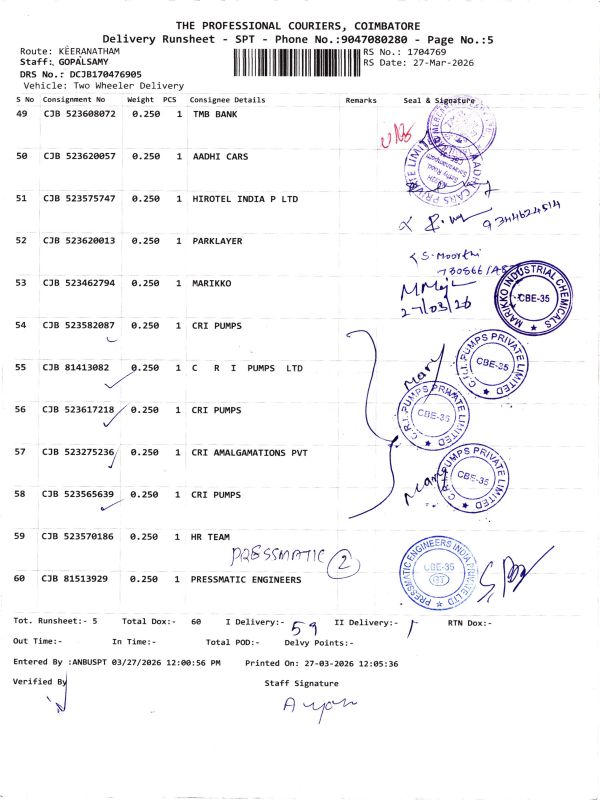 THE PROFESSIONAL COURIERS, COIMBATORE
Delivery Runsheet - SPT - Phone No.:9047080280 - Page No.:5
Route: KEERANATHAM
RS No.: 1704769
Staff: GOPALSAMY
RS Date: 27-Mar-2026
DRS No.: DCJB170476905
Vehicle: Two Wheeler Delivery
S No Consignment No Weight PCS Consignee Details Remarks Seal & Signature
49 CJB 523608072 0.250 1 TMB BANK
50 CJB 523620057 0.250 1 AADHI CARS
AADHI CARS PRIVATE LIMITED
51 CJB 523575747 0.250 1 HIROTEL INDIA P LTD
9344624514
52 CJB 523620013 0.250 1 PARKLAYER
S. Moorthi
53 CJB 523462794 0.250 1 MARIKKO
27/03/26
MARIKKO INDUSTRIAL CHEMICALS CBE-35
54 CJB 523582087 0.250 1 CRI PUMPS
C.R.I. PUMPS PRIVATE LIMITED CBE-35
55 CJB 81413082 0.250 1 C R I PUMPS LTD
Mary
56 CJB 523617218 0.250 1 CRI PUMPS
C.R.I. PUMPS PRIVATE LIMITED CBE-35
57 CJB 523275236 0.250 1 CRI AMALGAMATIONS PVT
C.R.I. PUMPS PRIVATE LIMITED CBE-35
58 CJB 523565639 0.250 1 CRI PUMPS
Mary
59 CJB 523570186 0.250 1 HR TEAM
PRESSMATIC 2
PRESSMATIC ENGINEERS INDIA PRIVATE LTD CBE-35
60 CJB 81513929 0.250 1 PRESSMATIC ENGINEERS
Tot. Runsheet:- 5 Total Dox:- 60 I Delivery:- 59 II Delivery:- 1 RTN Dox:-
Out Time:- In Time:- Total POD:- Delvy Points:-
Entered By :ANBUSPT 03/27/2026 12:00:56 PM Printed On: 27-03-2026 12:05:36
Verified By Staff Signature